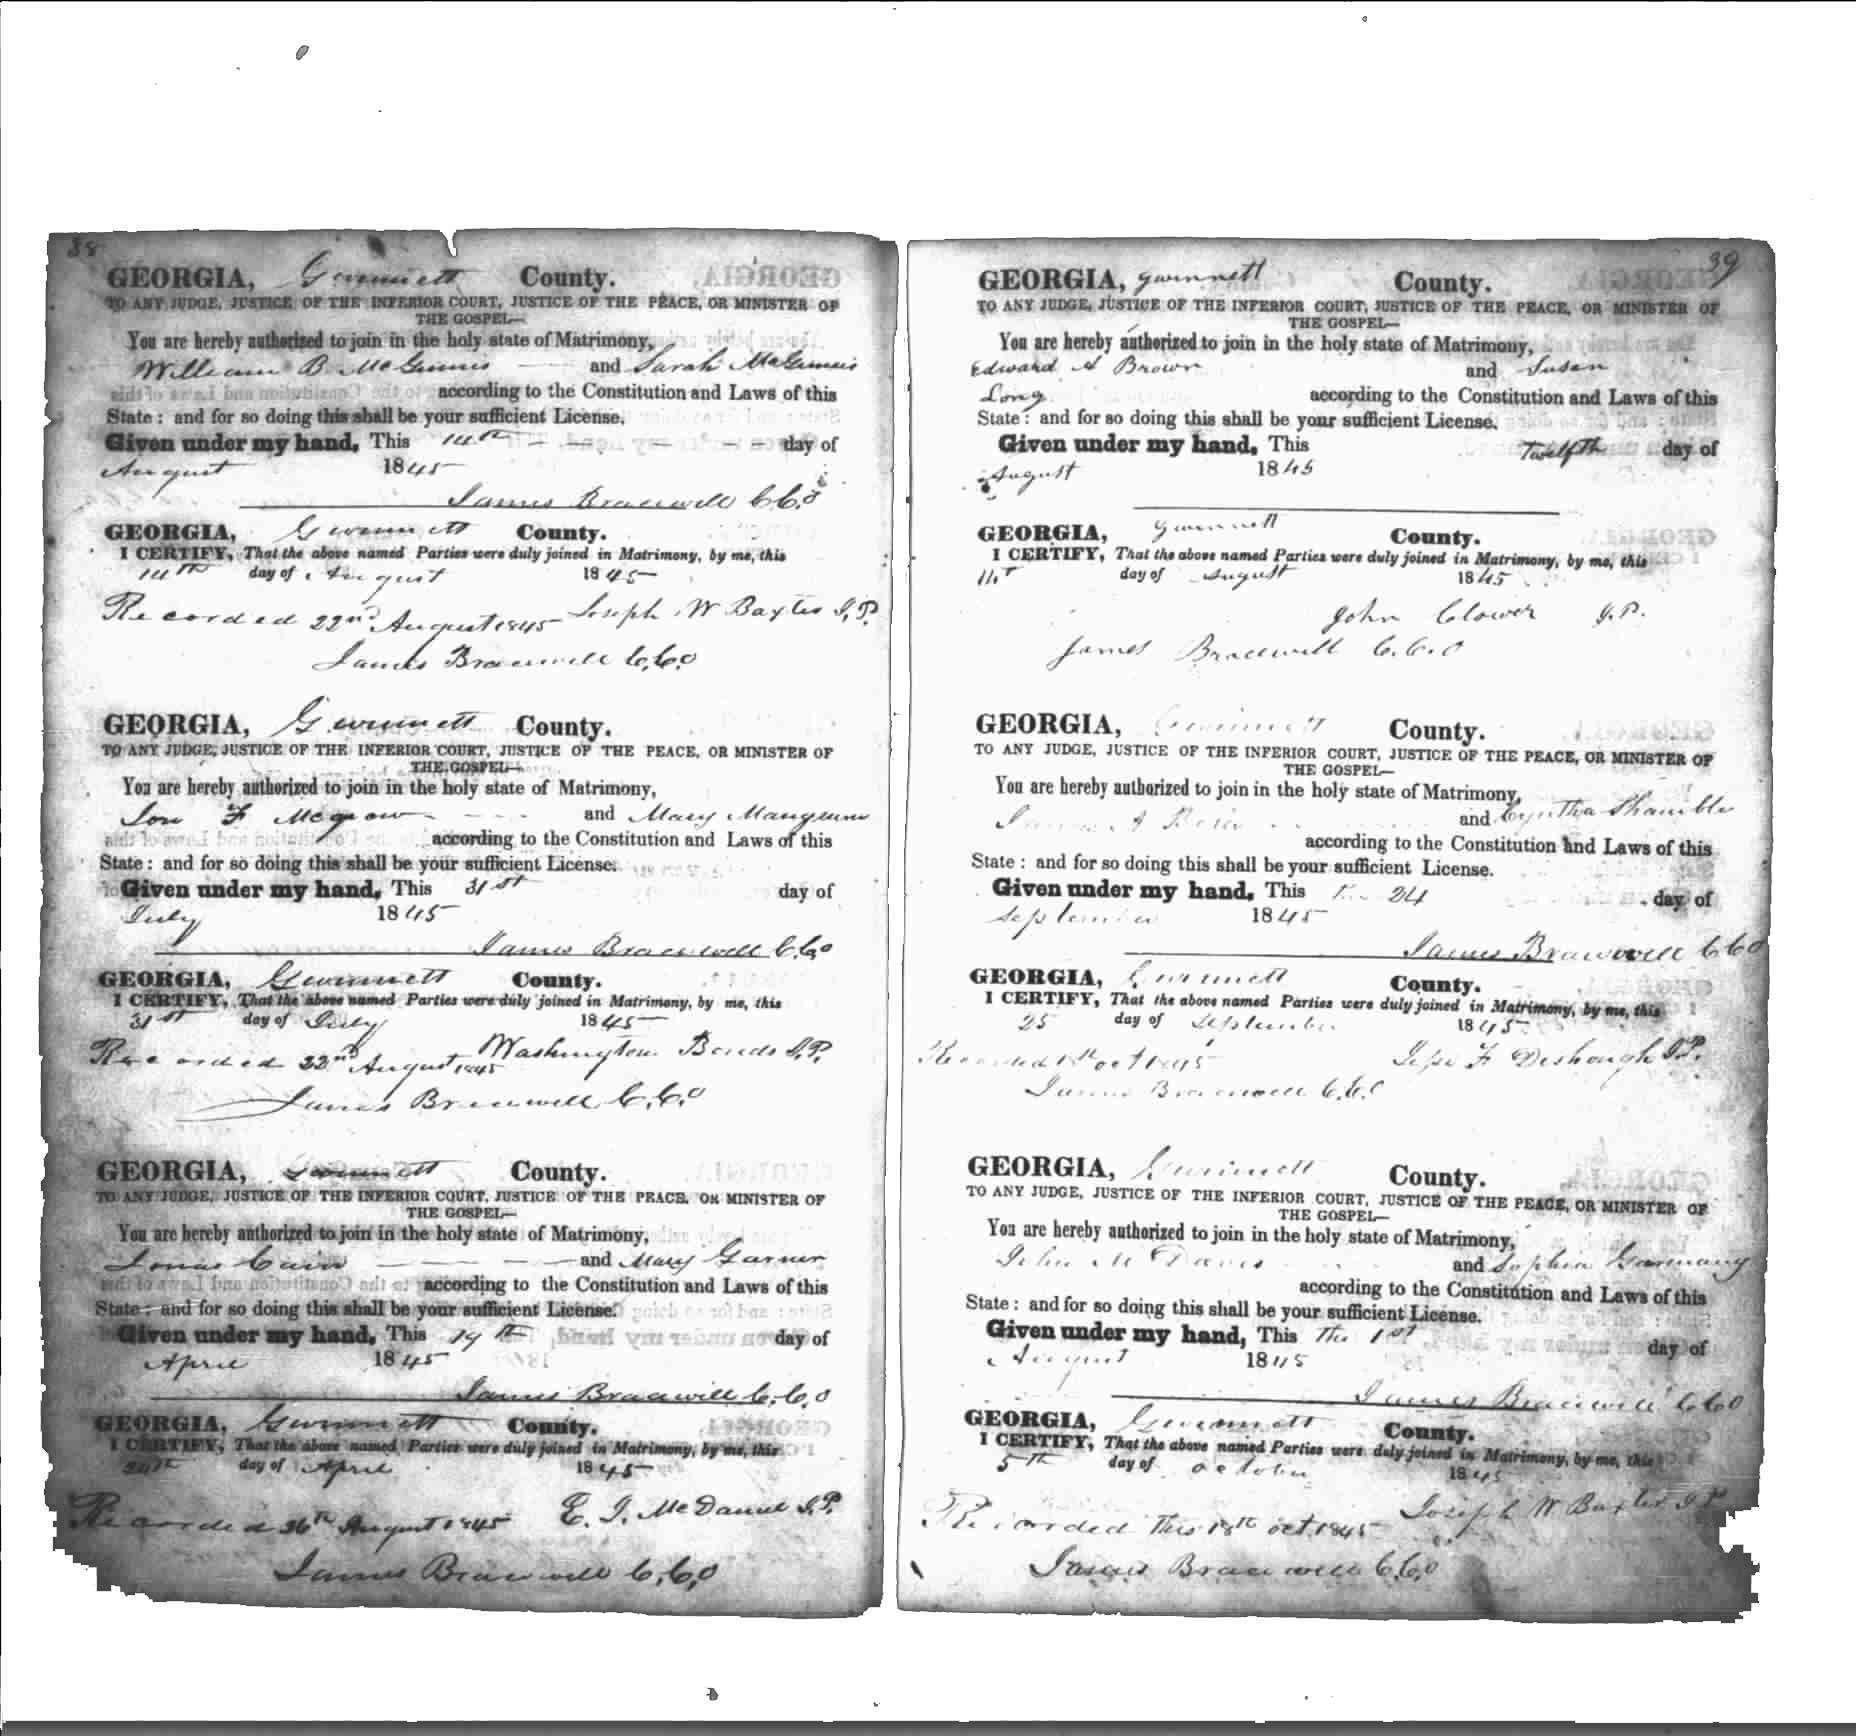 38
GEORGIA, Gwinnett County.
TO ANY JUDGE, JUSTICE OF THE INFERIOR COURT, JUSTICE OF THE PEACE, OR MINISTER OF
THE GOSPEL—
You are hereby authorized to join in the holy state of Matrimony,
William B. McGinnis and Sarah McGinnis
according to the Constitution and Laws of this
State: and for so doing this shall be your sufficient License.
Given under my hand, This 14th day of
August 1845
James Bracewell C.C.O
GEORGIA, Gwinnett County.
I CERTIFY, That the above named Parties were duly joined in Matrimony, by me, this
14th day of August 1845
Recorded 22nd August 1845 Joseph W Baxter J.P.
James Bracewell C.C.O
GEORGIA, Gwinnett County.
TO ANY JUDGE, JUSTICE OF THE INFERIOR COURT, JUSTICE OF THE PEACE, OR MINISTER OF
THE GOSPEL—
You are hereby authorized to join in the holy state of Matrimony,
F and Mary Mangum
according to the Constitution and Laws of this
State: and for so doing this shall be your sufficient License.
Given under my hand, This 31st day of
July 1845
James Bracewell C.C.O
GEORGIA, Gwinnett County.
I CERTIFY, That the above named Parties were duly joined in Matrimony, by me, this
31st day of July 1845
Recorded 22nd August 1845 Washington Bonds J.P.
James Bracewell C.C.O
GEORGIA, Gwinnett County.
TO ANY JUDGE, JUSTICE OF THE INFERIOR COURT, JUSTICE OF THE PEACE, OR MINISTER OF
THE GOSPEL—
You are hereby authorized to join in the holy state of Matrimony,
Jonas Cain and Mary Garner
according to the Constitution and Laws of this
State: and for so doing this shall be your sufficient License.
Given under my hand, This 19th day of
April 1845
James Bracewell C.C.O
GEORGIA, Gwinnett County.
I CERTIFY, That the above named Parties were duly joined in Matrimony, by me, this
day of April 1845
Recorded 26th August 1845 E. J. McDaniel J.P.
James Bracewell C.C.O
39
GEORGIA, Gwinnett County.
TO ANY JUDGE, JUSTICE OF THE INFERIOR COURT, JUSTICE OF THE PEACE, OR MINISTER OF
THE GOSPEL—
You are hereby authorized to join in the holy state of Matrimony,
Edward A Brown and Susan
Long according to the Constitution and Laws of this
State: and for so doing this shall be your sufficient License.
Given under my hand, This Twelfth day of
August 1845
GEORGIA, Gwinnett County.
I CERTIFY, That the above named Parties were duly joined in Matrimony, by me, this
day of August 1845
John Clower J.P.
James Bracewell C.C.O
GEORGIA, Gwinnett County.
TO ANY JUDGE, JUSTICE OF THE INFERIOR COURT, JUSTICE OF THE PEACE, OR MINISTER OF
THE GOSPEL—
You are hereby authorized to join in the holy state of Matrimony,
James A and Cyntha Shamble
according to the Constitution and Laws of this
State: and for so doing this shall be your sufficient License.
Given under my hand, This 24 day of
September 1845
James Bracewell C.C.O
GEORGIA, Gwinnett County.
I CERTIFY, That the above named Parties were duly joined in Matrimony, by me, this
25 day of September 1845
Recorded oct 1845 F J.P.
James Bracewell C.C.O
GEORGIA, Gwinnett County.
TO ANY JUDGE, JUSTICE OF THE INFERIOR COURT, JUSTICE OF THE PEACE, OR MINISTER OF
THE GOSPEL—
You are hereby authorized to join in the holy state of Matrimony,
John M Davis and Sophia Garmany
according to the Constitution and Laws of this
State: and for so doing this shall be your sufficient License.
Given under my hand, This the 1st day of
August 1845
James Bracewell C.C.O
GEORGIA, Gwinnett County.
I CERTIFY, That the above named Parties were duly joined in Matrimony, by me, this
5th day of October 1845
Recorded this 18th oct 1845 Joseph W Baxter J.P.
James Bracewell C.C.O